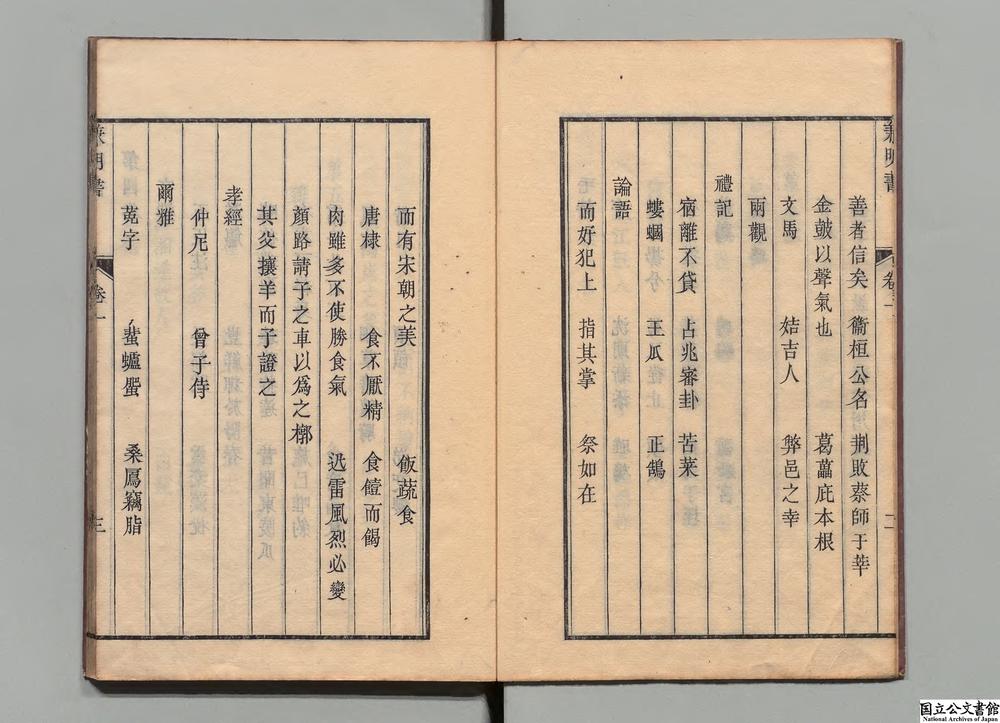 兼明書
卷一
二
善者信矣 衞桓公名 荆敗蔡師于莘
金皷以聲氣也 葛藟庇本根
文馬 姞吉人 弊邑之幸
兩觀
禮記
宿離不貸 占兆審卦 苦菜
螻蟈 王瓜 正鵠
論語
而好犯上 指其掌 祭如在
而有宋朝之美 飯蔬食
唐棣 食不厭精 食饐而餲
肉雖多不使勝食氣 迅雷風烈必變
顏路請子之車以爲之槨
其父攘羊而子證之
孝經
仲尼 曾子侍
爾雅
蜚蠦蜰 桑鳸竊脂
兼明書
卷一
三
国立公文書館
National Archives of Japan